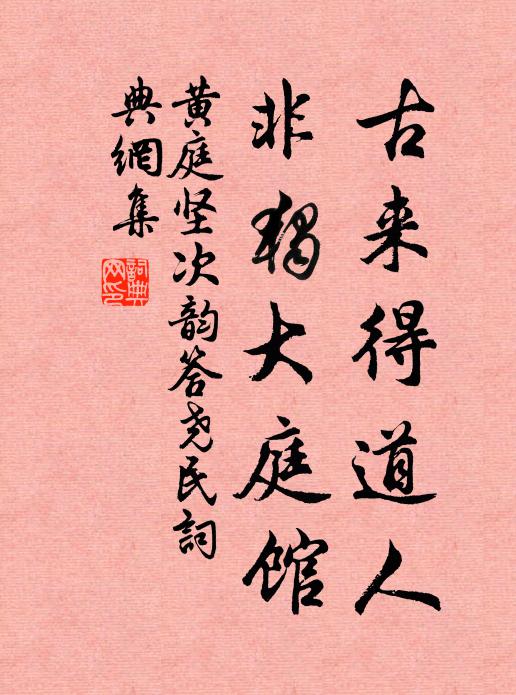 古来得道人
非独大庭馆
黄庭坚次韵答尧民詞
典網集
詞典网印